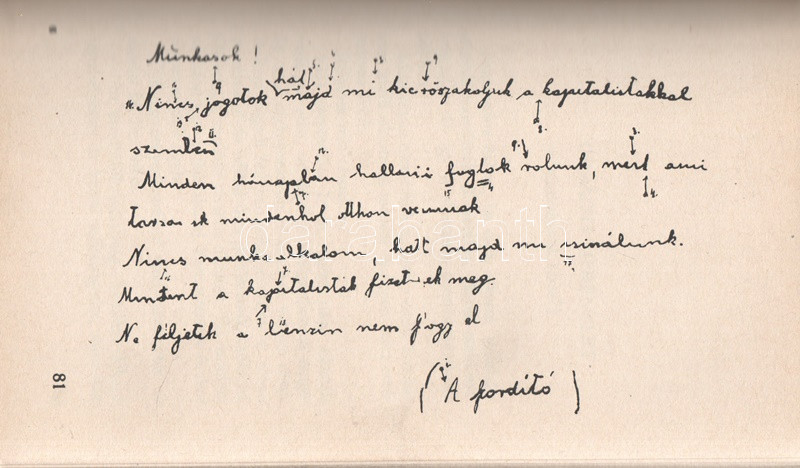 Munkasok!
"Nincs jogotok hát majd mi kierőszakoljuk a kapitalistakkal
szemben
Minden hónapban hallani fogtok rolunk, mert ami
mindenhol otthon vannak
Nincs munka alkalom, hát majd mi csinálunk.
Mindent a kapitalisták fizetnek meg.
Ne féljetek a benzin nem fogy el
(A fordító)
81
darabanth